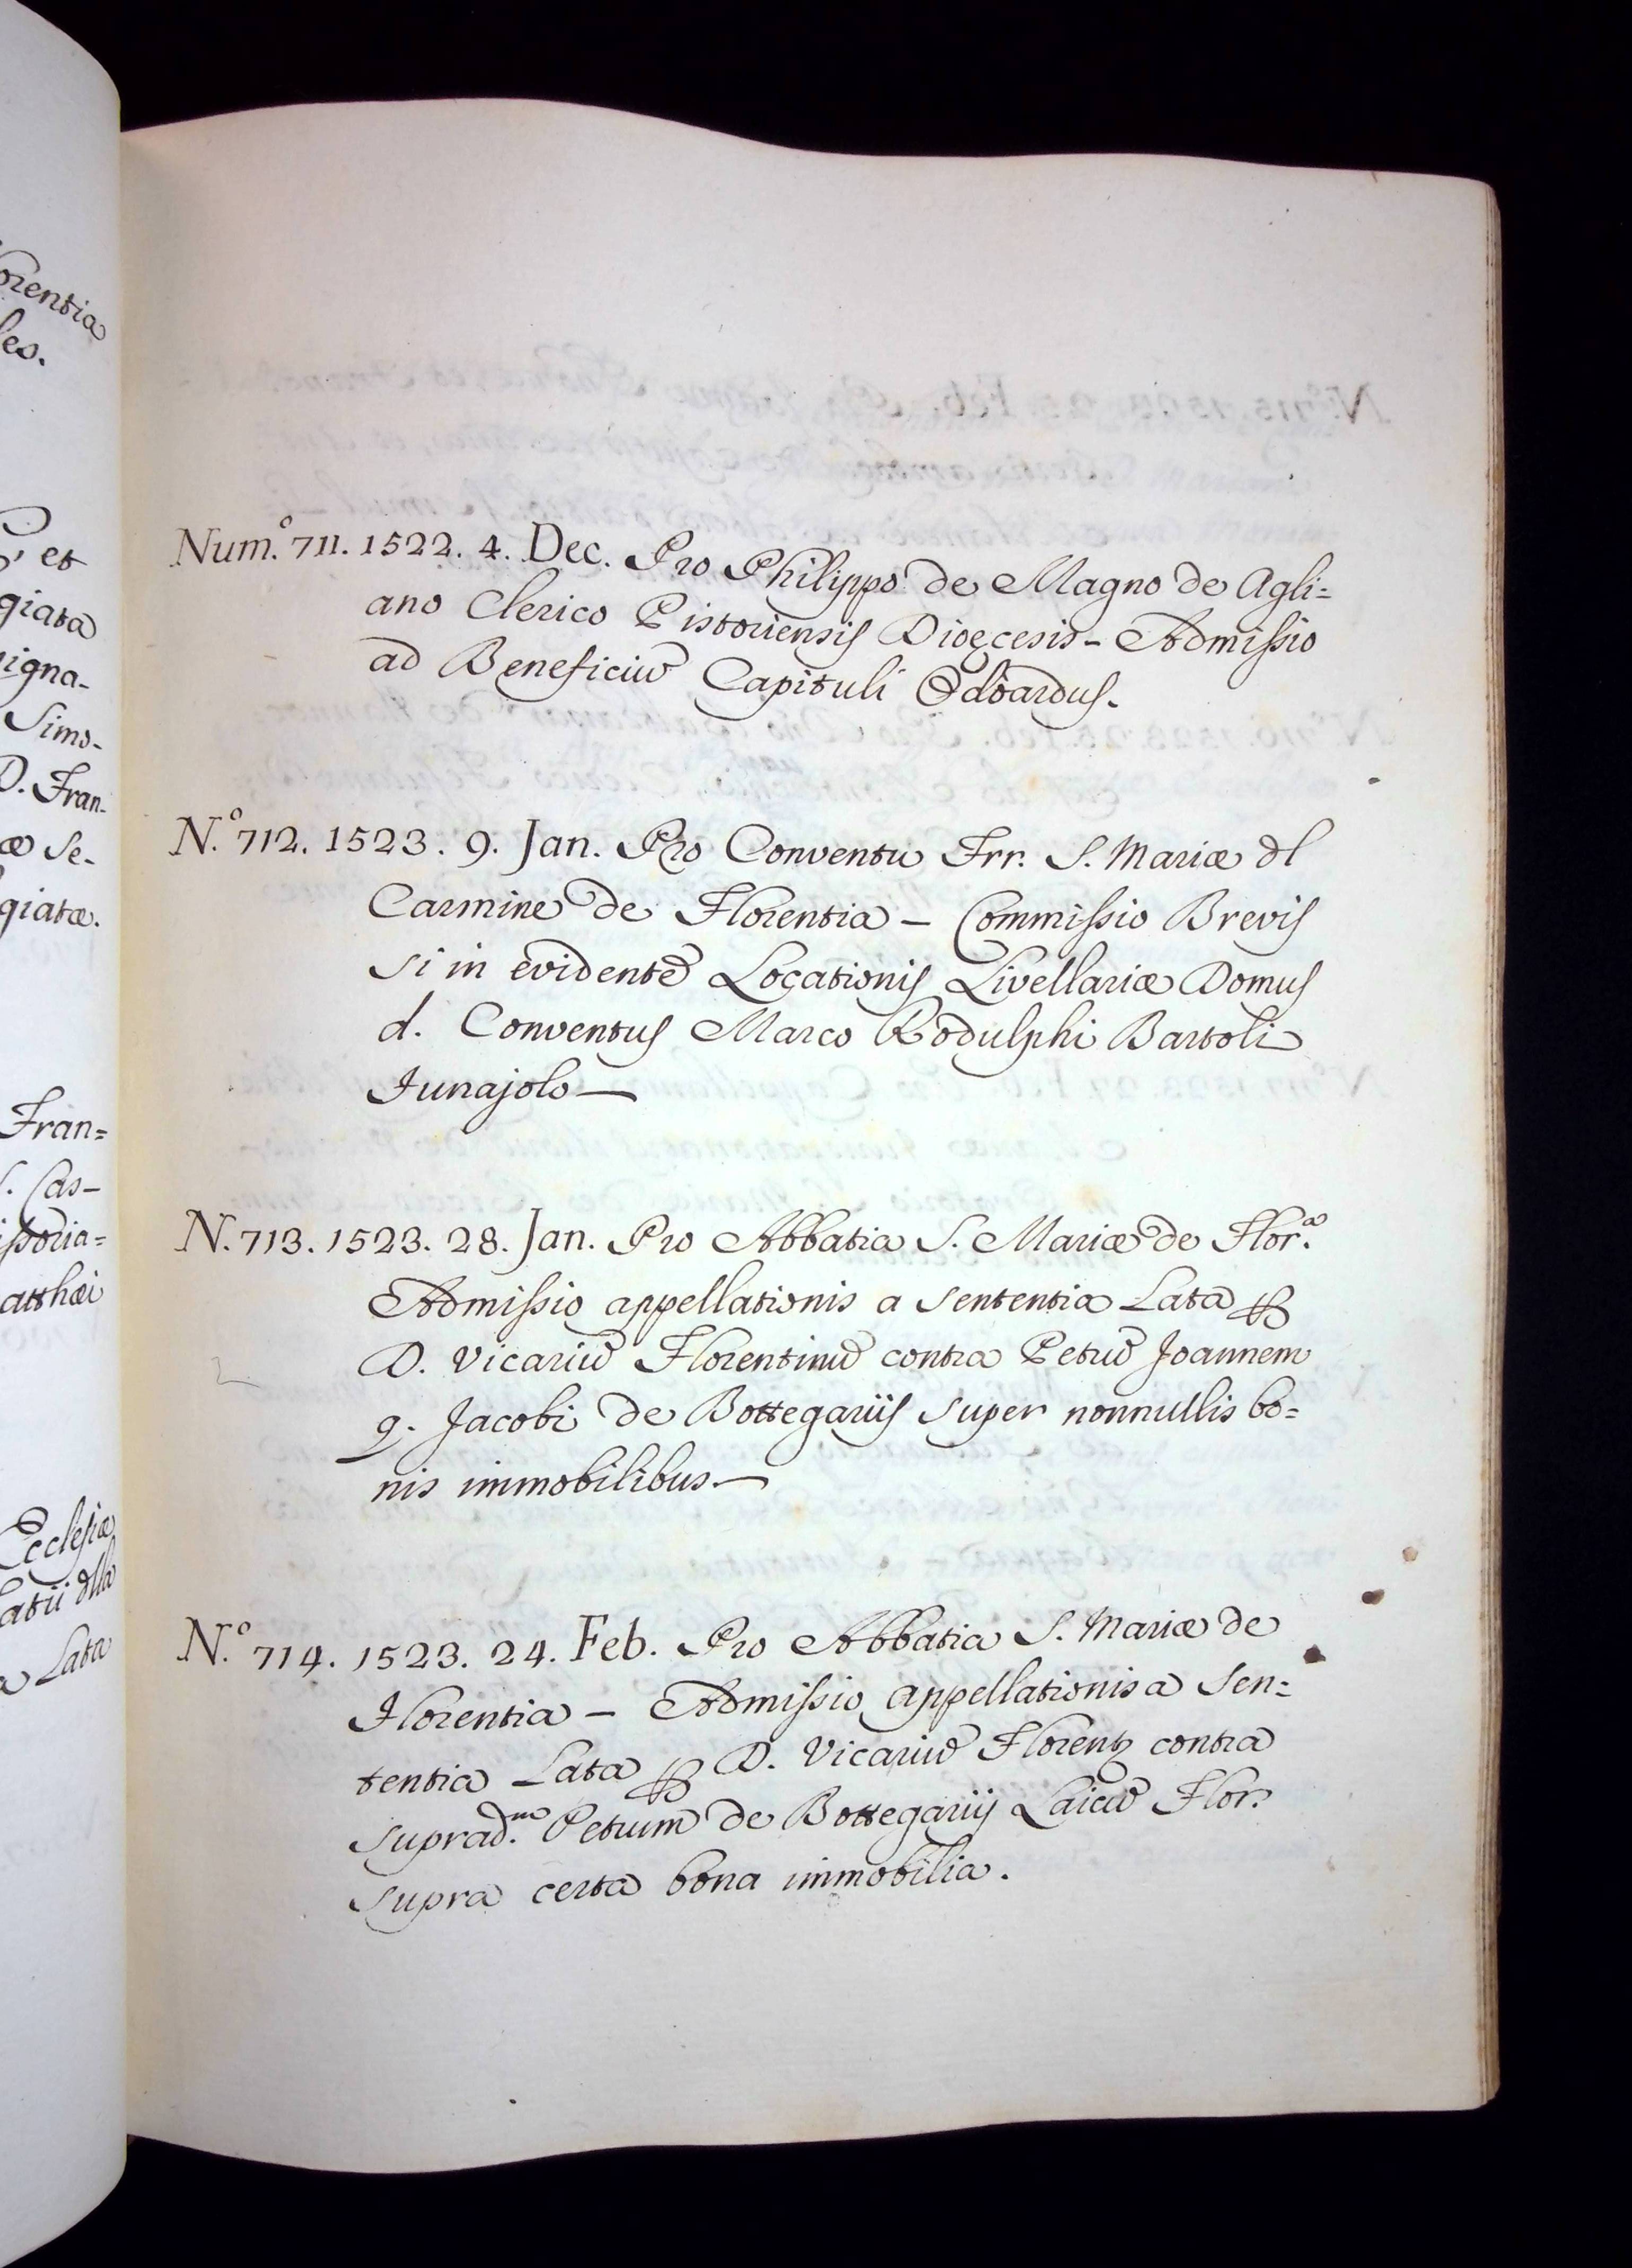 orentia
les.
et
giata
igna-
Simo-
D. Fran-
æ Se-
giatæ.
Fran=
S. Cas-
issoria=
atthæi
Ecclesiæ
latii dlla
a Lata
Num.º 711. 1522. 4. Dec. Pro Philippo de Magno de Agli=
ano Clerico Pistoriensis Dioecesis - Admissio
ad Beneficiũ Capituli
Nº. 712. 1523. 9. Jan. Pro Conventu Frr. S. Mariæ dl
Carmine de Florentia - Commissio Brevis
si in evidentẽ Locationis Livellariæ Domus
d. Conventus Marco Rodulphi Bartoli
Funajolo —
N. 713. 1523. 28. Jan. Pro Abbatia S. Mariæ de Flor.ª
Admissio appellationis a sententia Lata ꝑ
D. Vicariũ Florentinũ contra Petrũ Joannem
q. Jacobi de Bottegariis super nonnullis bo=
nis immobilibus. —
N.º 714. 1523. 24. Feb. Pro Abbatia S. Mariæ de
Florentia - Admissio appellationis a Sen=
tentia Lata ꝑ D. Vicariũ Florentꝫ contra
suprad.ᵐ Petrum de Bottegariis Laicũ Flor.
supra certa bona immobilia.